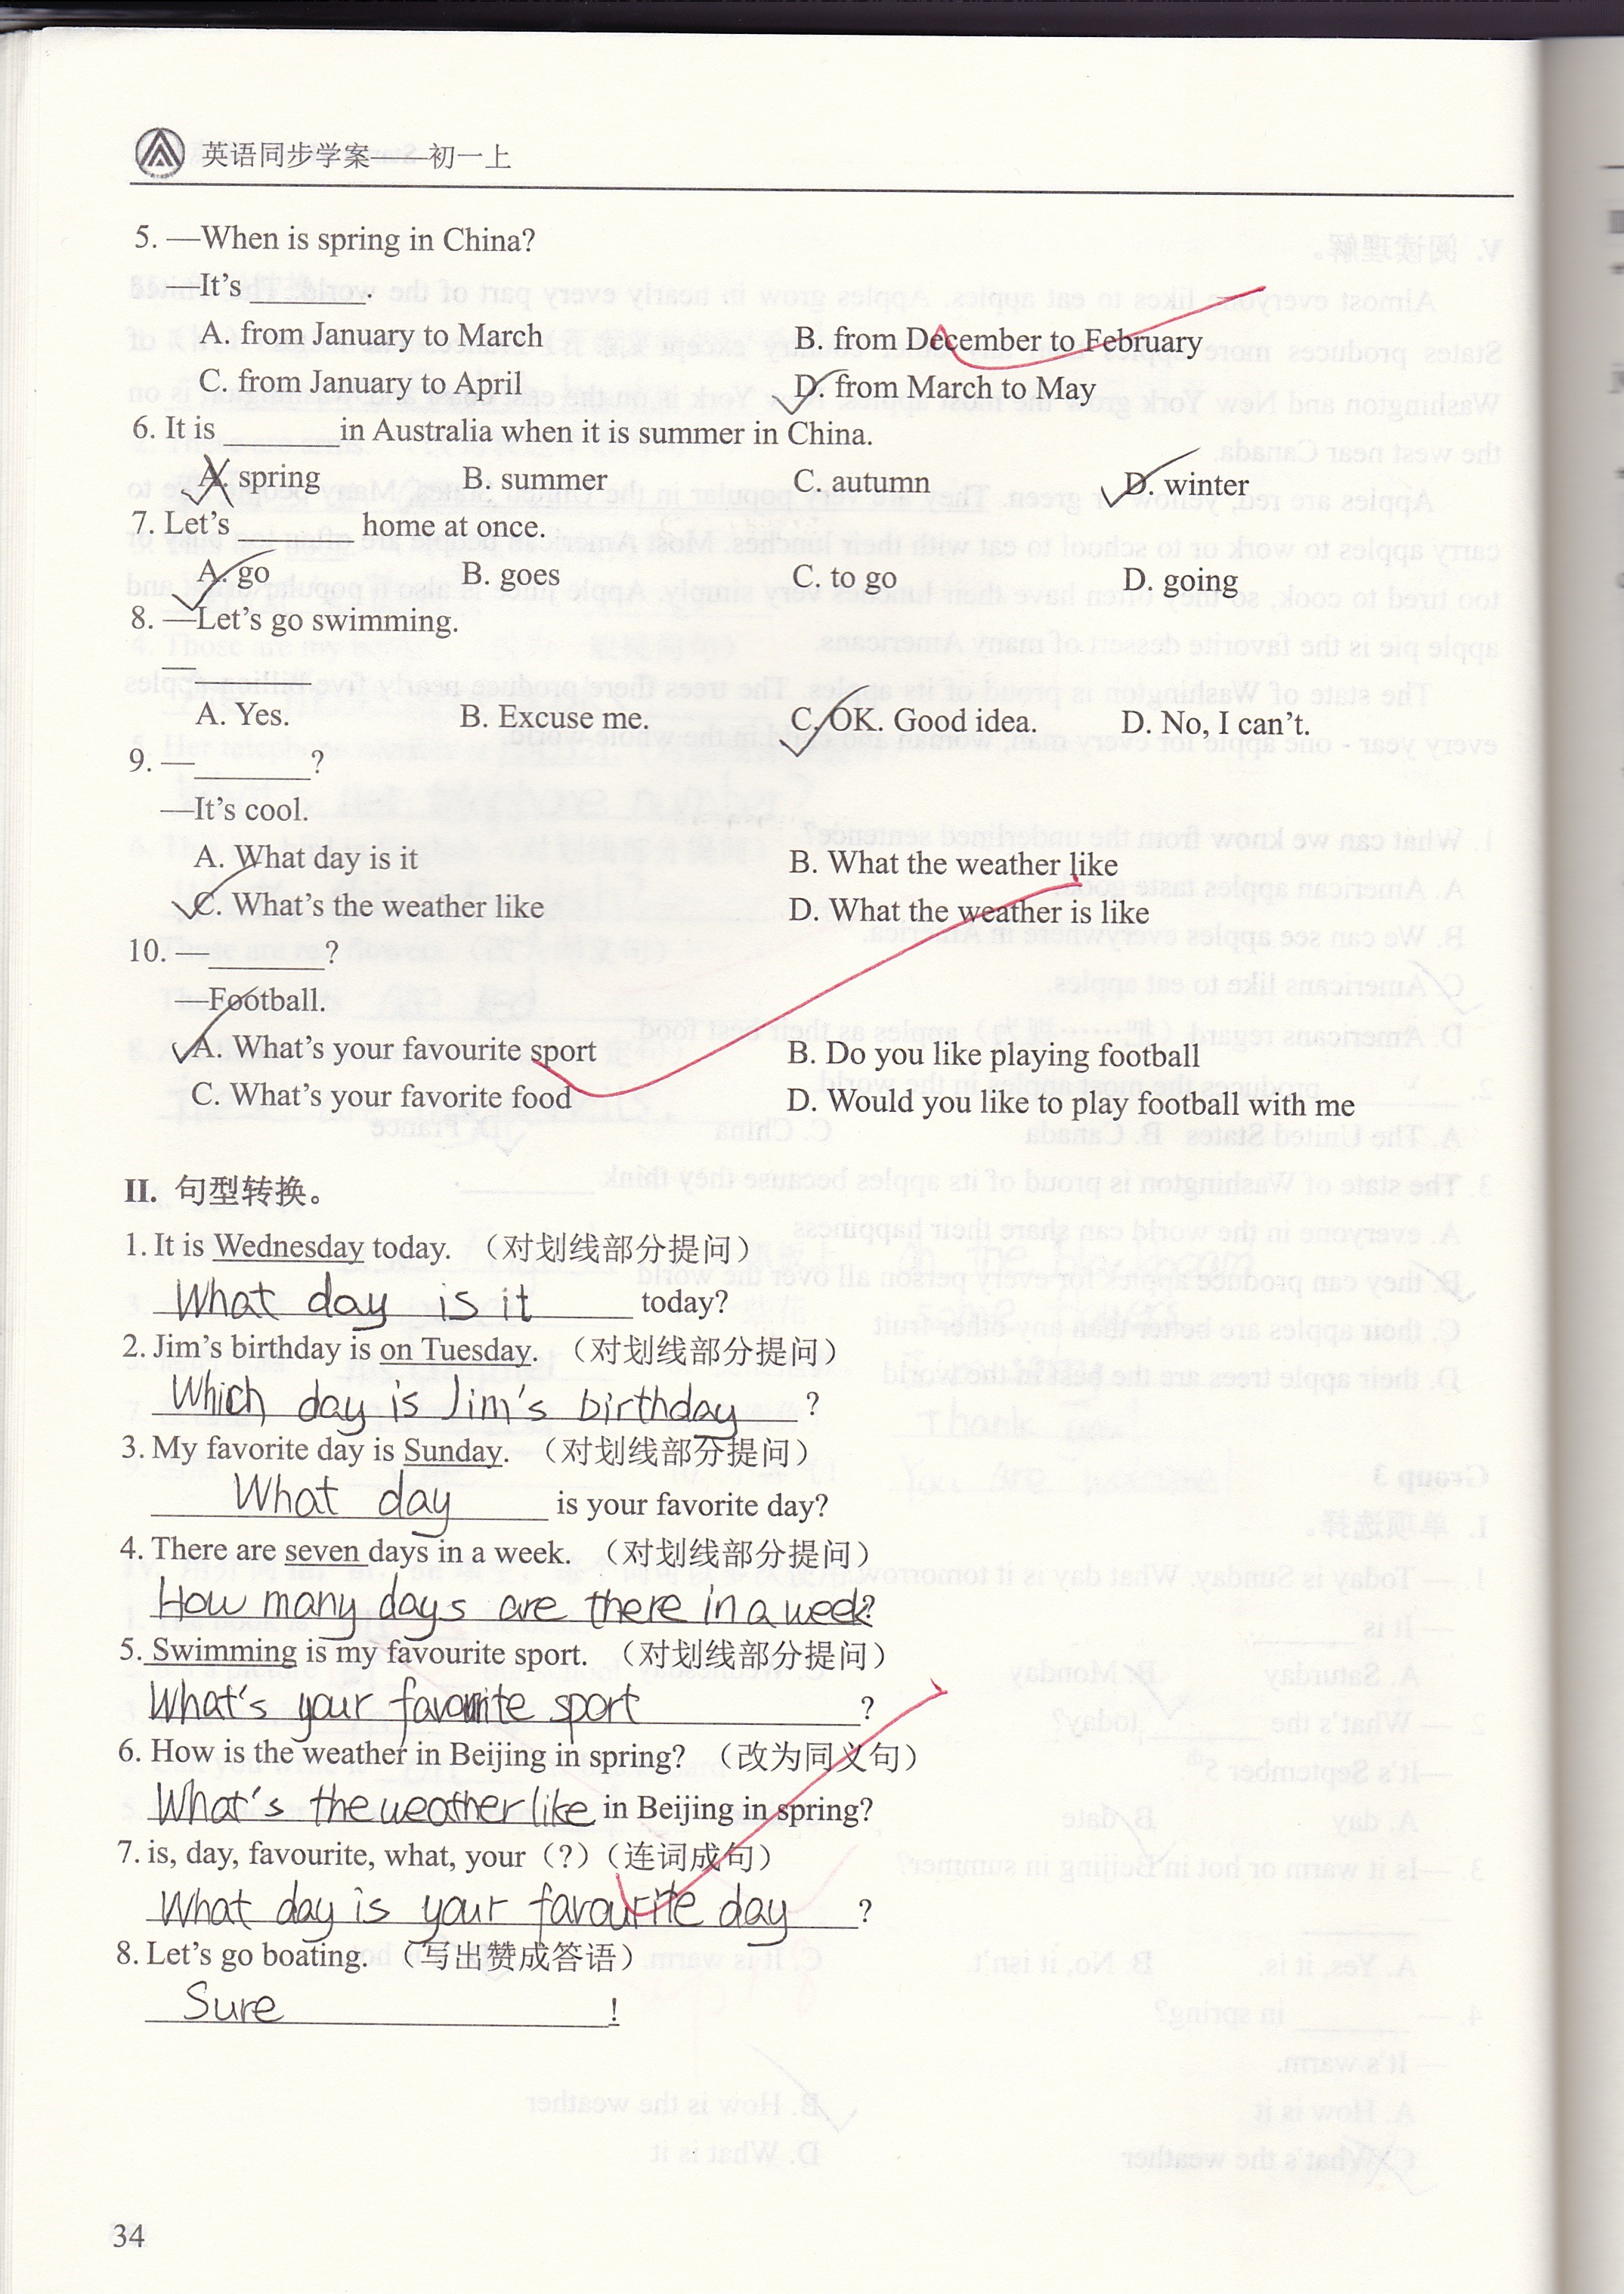 英语同步学案——初一上
5. —When is spring in China?
—It's ______.
A. from January to March B. from December to February
C. from January to April D. from March to May
6. It is ______ in Australia when it is summer in China.
A. spring B. summer C. autumn D. winter
7. Let's ______ home at once.
A. go B. goes C. to go D. going
8. —Let's go swimming.
—______
A. Yes. B. Excuse me. C. OK. Good idea. D. No, I can't.
9. —______?
—It's cool.
A. What day is it B. What the weather like
C. What's the weather like D. What the weather is like
10. —______?
—Football.
A. What's your favourite sport B. Do you like playing football
C. What's your favorite food D. Would you like to play football with me
II. 句型转换。
1. It is Wednesday today. （对划线部分提问）
What day is it today?
2. Jim's birthday is on Tuesday. （对划线部分提问）
Which day is Jim's birthday ?
3. My favorite day is Sunday. （对划线部分提问）
What day is your favorite day?
4. There are seven days in a week. （对划线部分提问）
How many days are there in a week?
5. Swimming is my favourite sport. （对划线部分提问）
What's your favourite sport ?
6. How is the weather in Beijing in spring? （改为同义句）
What's the weather like in Beijing in spring?
7. is, day, favourite, what, your（?）（连词成句）
What day is your favourite day ?
8. Let's go boating. （写出赞成答语）
Sure !
34